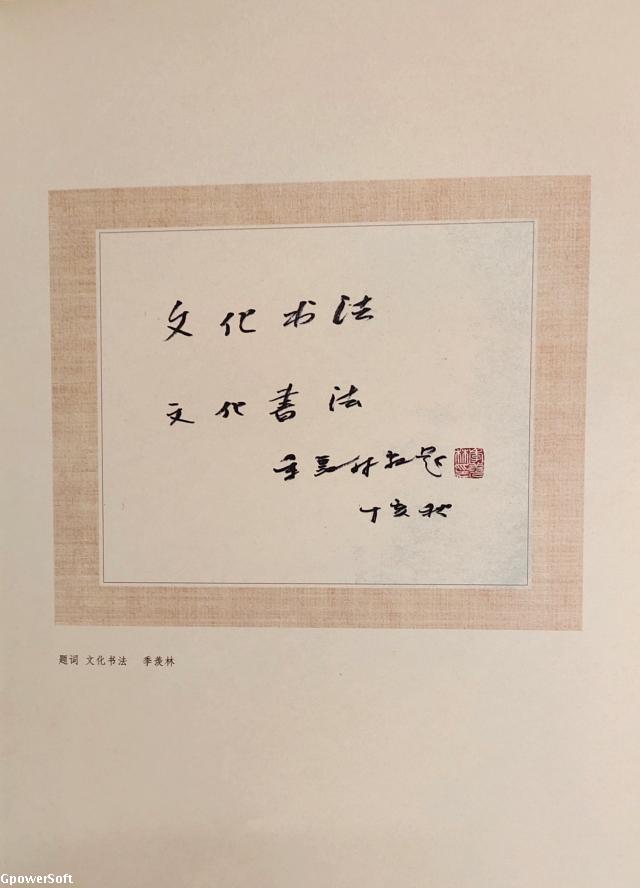 文化书法
文化書法
季羡林敬题
丁亥秋
题词 文化书法 季羡林
GpowerSoft